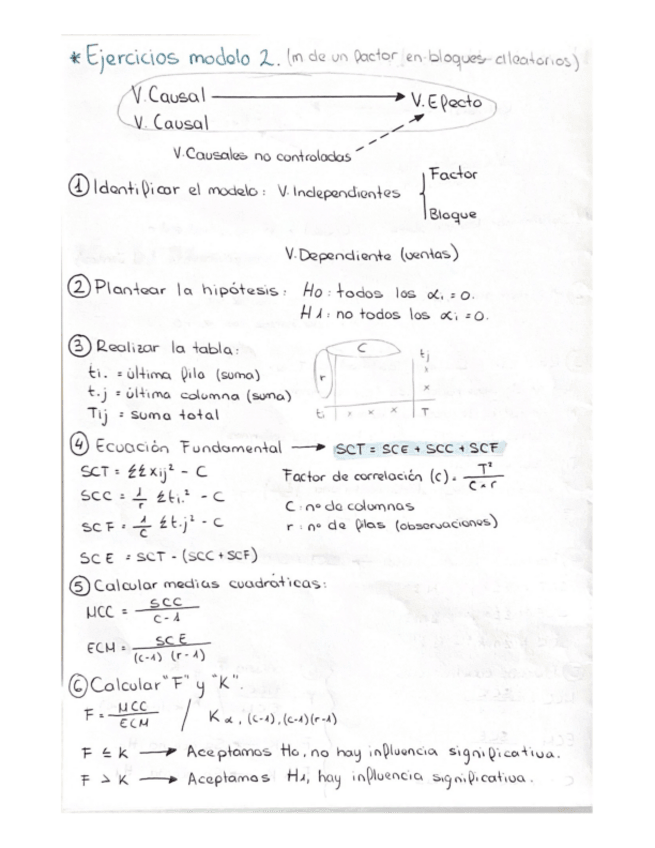 * Ejercicios modelo 2. (m de un factor en bloques aleatorios)
V. Causal → V. Efecto
V. Causal
V. Causales no controladas
① Identificar el modelo: V. Independientes { Factor
Bloque
V. Dependiente (ventas)
② Plantear la hipótesis: Ho: todos los αi = 0.
H1: no todos los αi = 0.
③ Realizar la tabla:
ti. = última fila (suma)
t.j = última columna (suma)
Tij = suma total
C tj
r x
x
ti x x x T
④ Ecuación Fundamental → SCT = SCE + SCC + SCF
SCT = ΣΣxij² - C Factor de correlación (c) = T² / c · r
SCC = 1/r Σti.² - C C: nº de columnas
SCF = 1/c Σt.j² - C r: nº de filas (observaciones)
SCE = SCT - (SCC + SCF)
⑤ Calcular medias cuadráticas:
MCC = SCC / c-1
ECM = SCE / (c-1) (r-1)
⑥ Calcular "F" y "K".
F = MCC / ECM / K α, (c-1), (c-1)(r-1)
F ≤ K → Aceptamos Ho, no hay influencia significativa.
F > K → Aceptamos H1, hay influencia significativa.